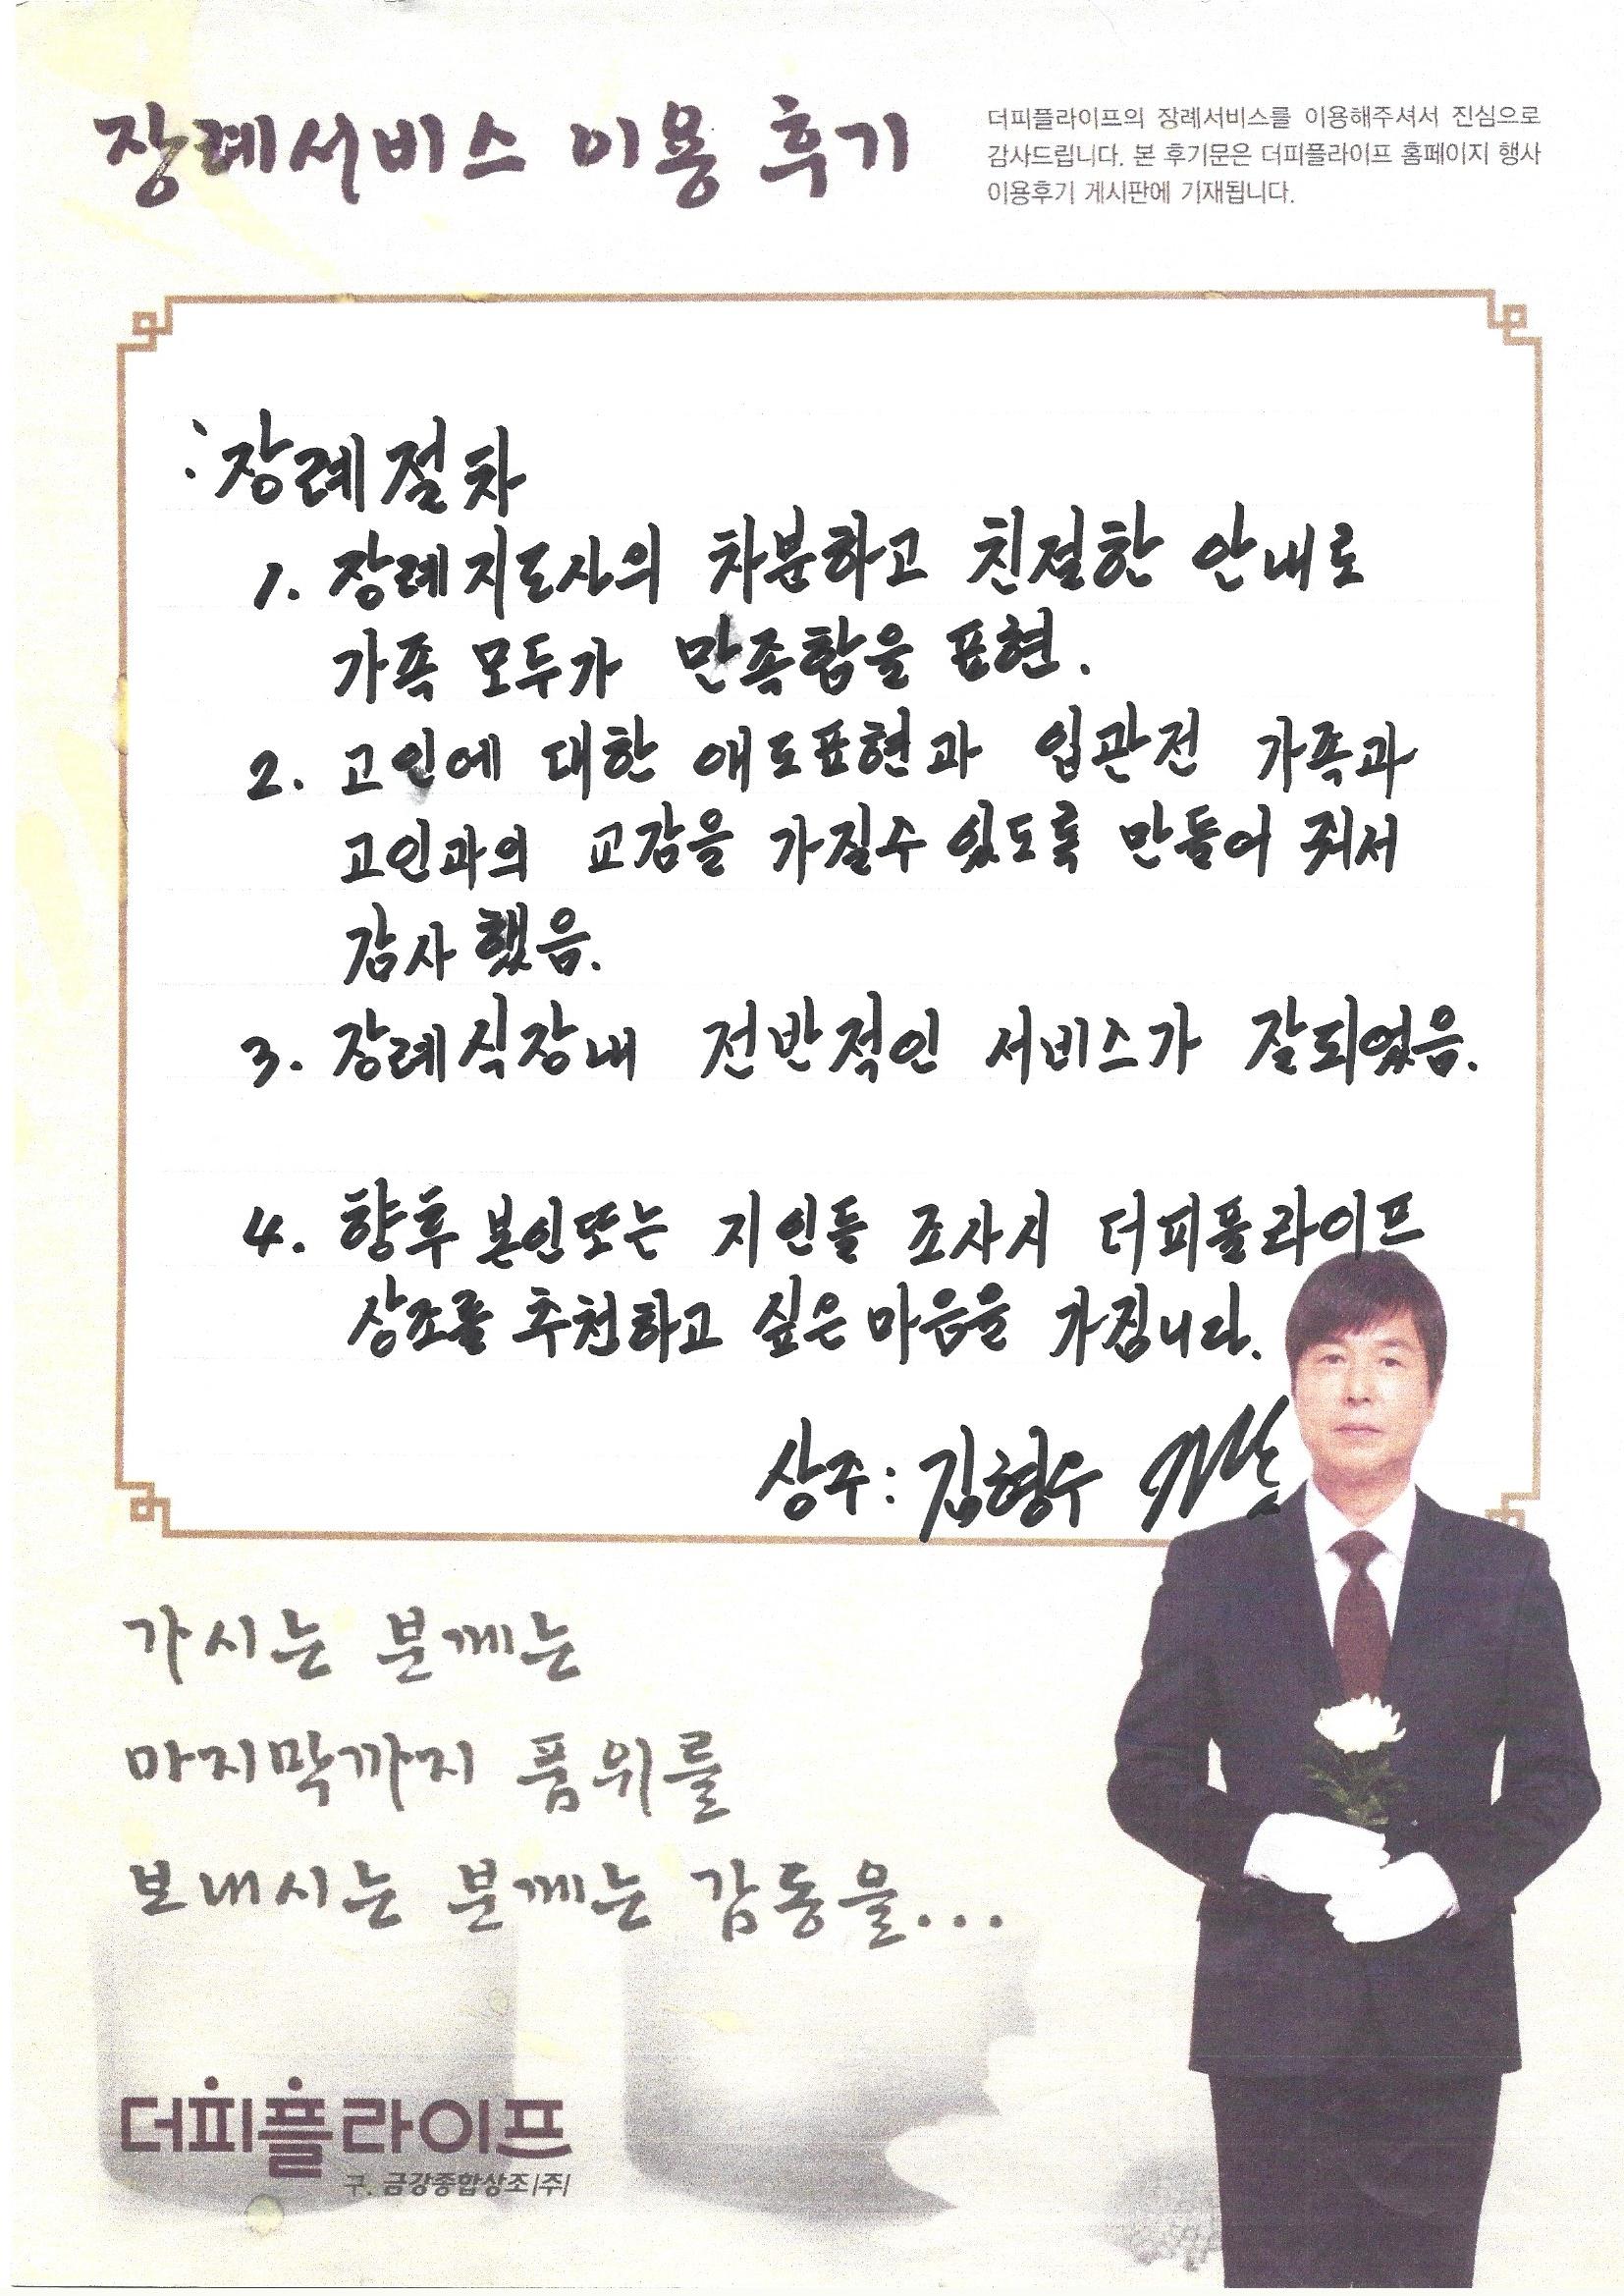 장례서비스 이용 후기
더피플라이프의 장례서비스를 이용해주셔서 진심으로
감사드립니다. 본 후기문은 더피플라이프 홈페이지 행사
이용후기 게시판에 기재됩니다.
: 장례절차
1. 장례지도사의 차분하고 친절한 안내로
가족 모두가 만족함을 표현.
2. 고인에 대한 애도표현과 입관전 가족과
고인과의 교감을 가질수 있도록 만들어 줘서
감사했음.
3. 장례식장내 전반적인 서비스가 잘되었음.
4. 향후 본인또는 지인들 조사시 더피플라이프
상조를 추천하고 싶은 마음을 가집니다.
상주: 김형우
가시는 분께는
마지막까지 품위를
보내시는 분께는 감동을...
더피플라이프
구. 금강종합상조(주)